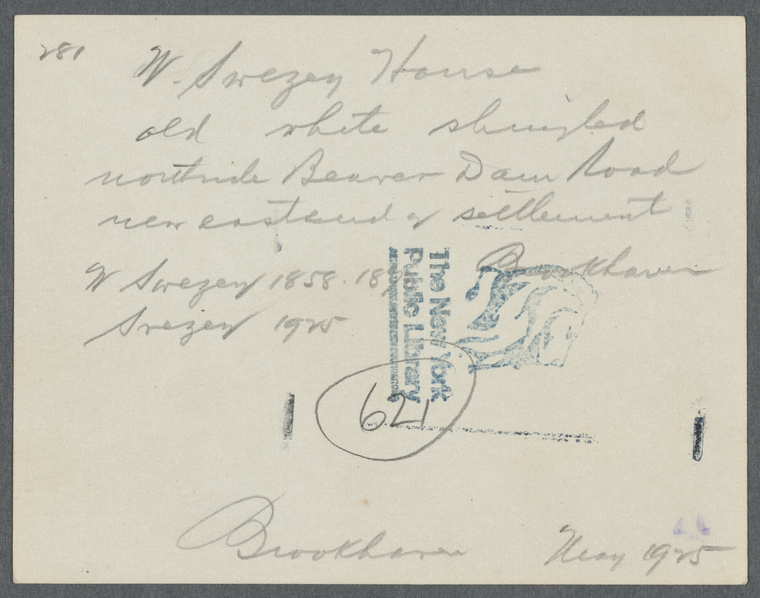 281
W. Swezey House
old white shingled
northside Beaver Dam Road
near east end of settlement
Brookhaven
W Swezey 1858. 18
Swezey 1925
The New York
Public Library
621
Brookhaven May 1925